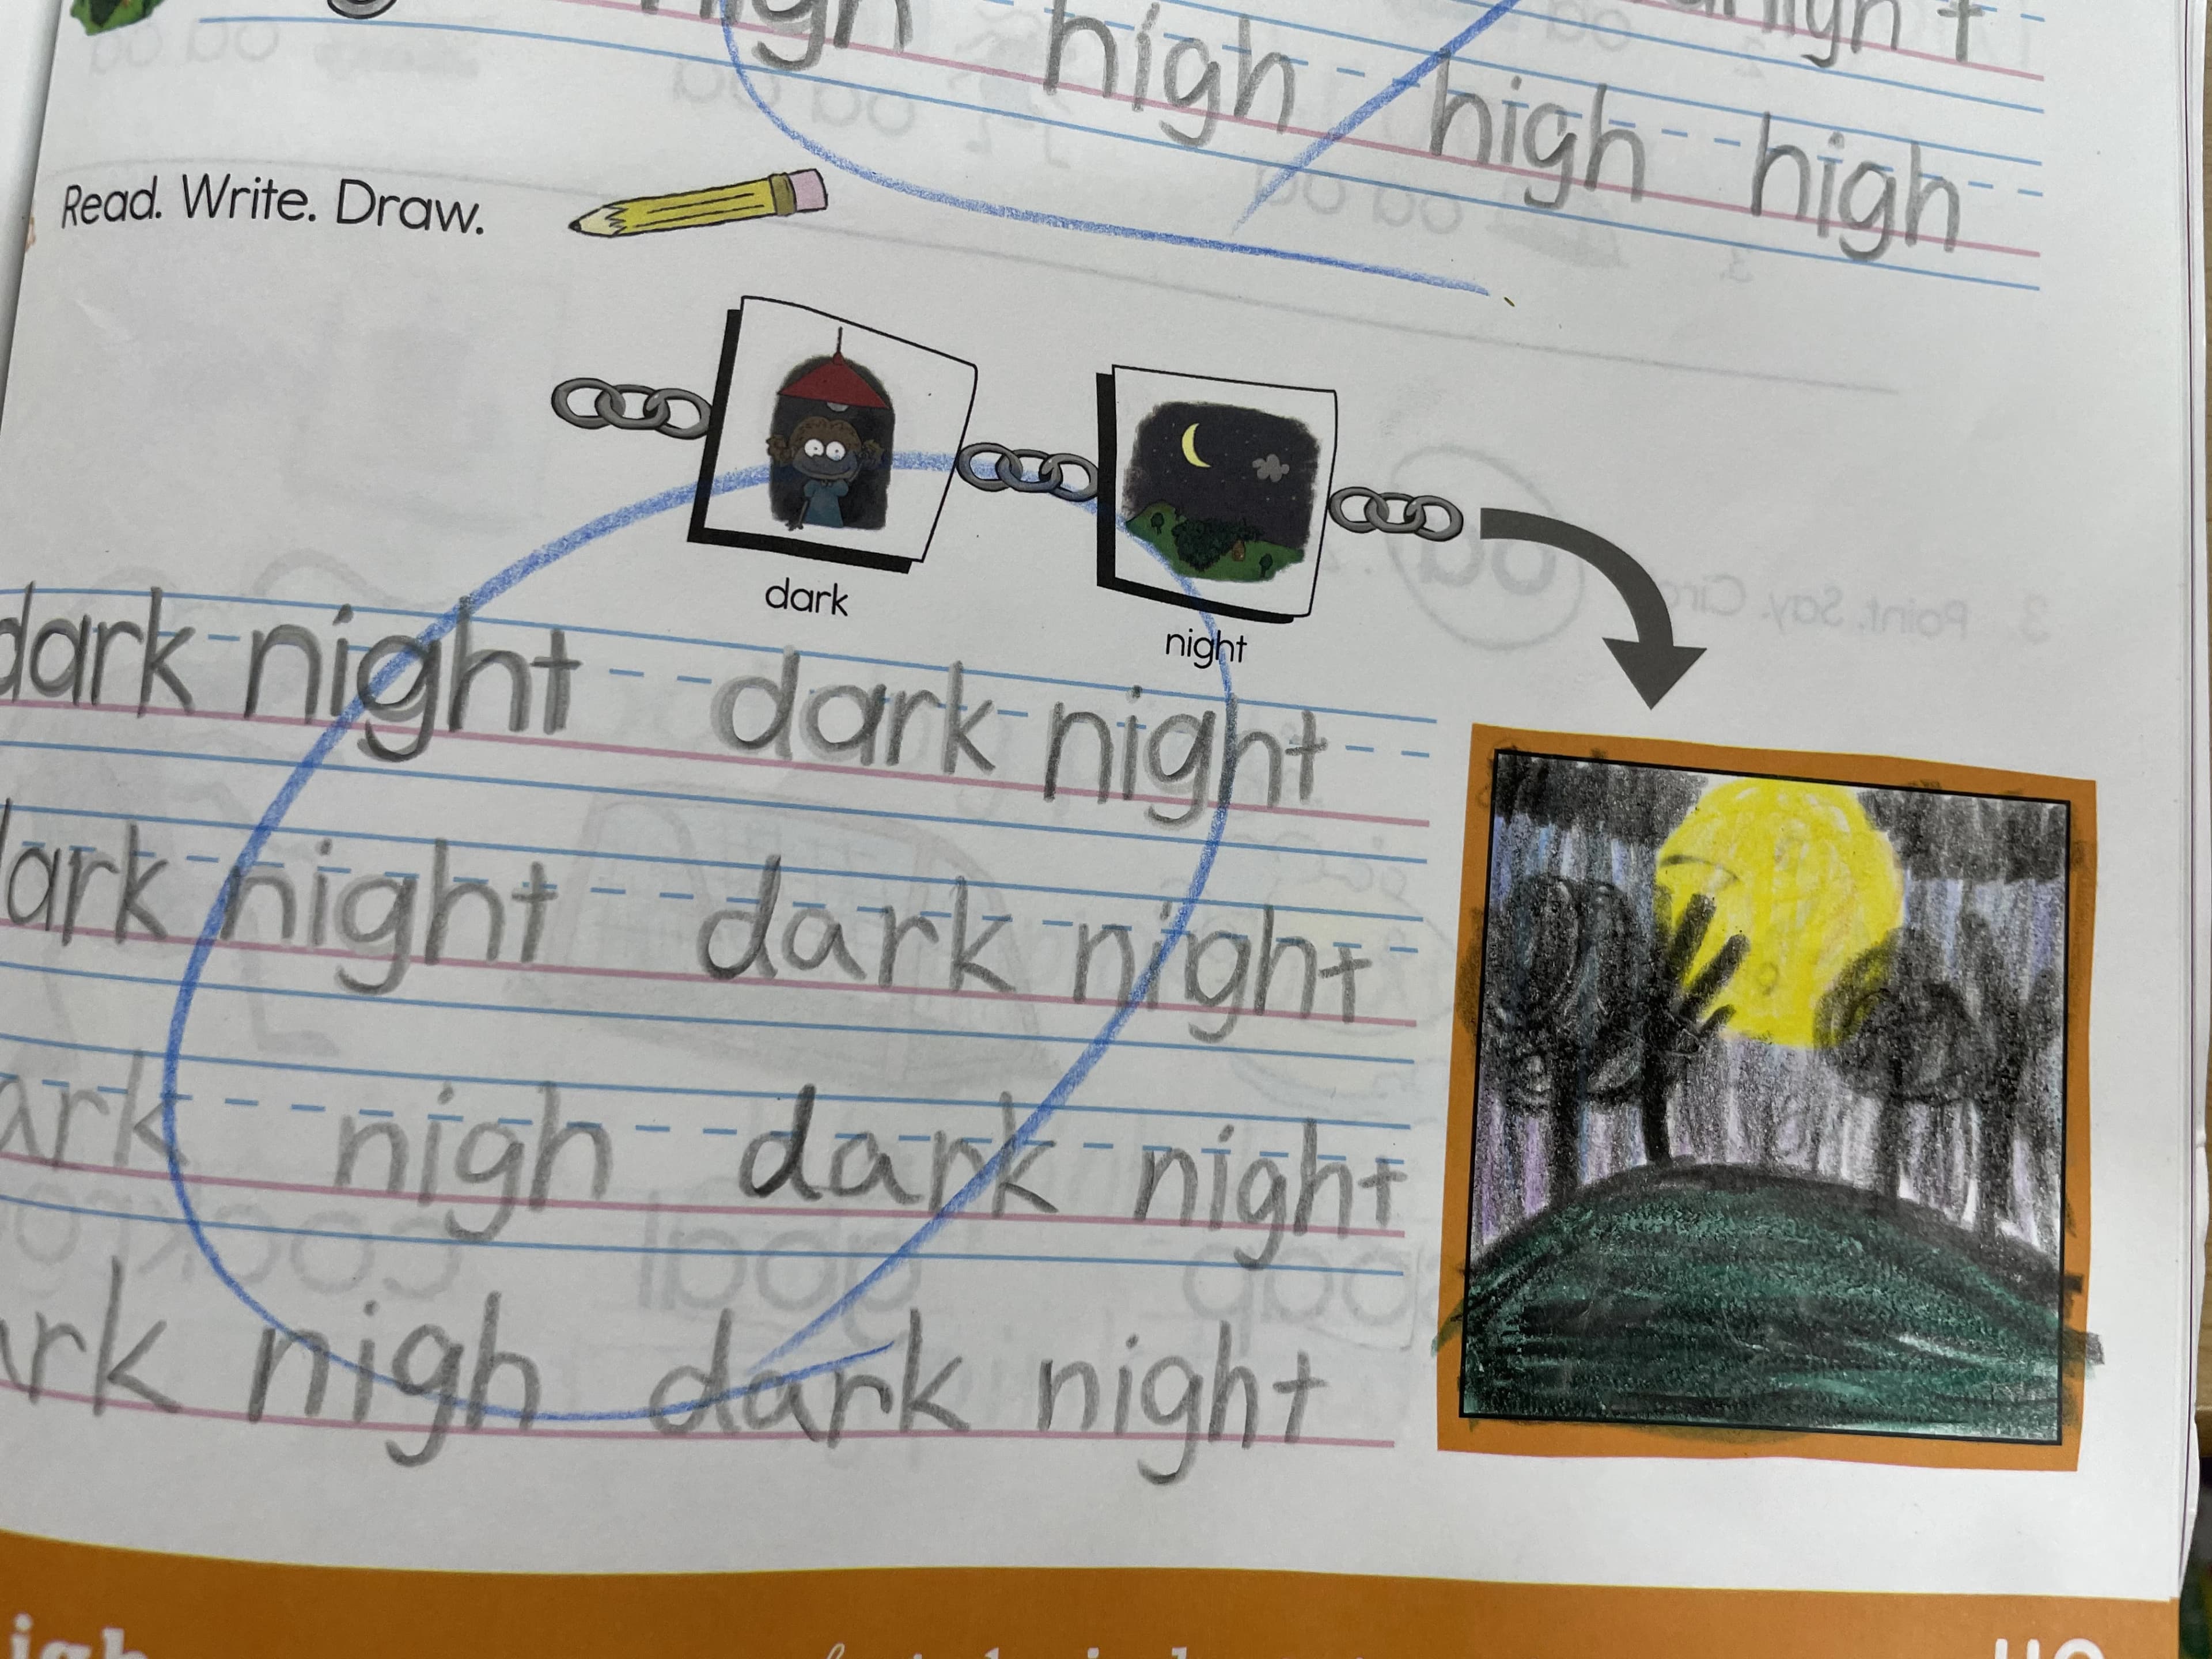 high high high
Read. Write. Draw.
dark
night
dark night dark night
dark night dark night
ark nigh dark night
ark nigh dark night